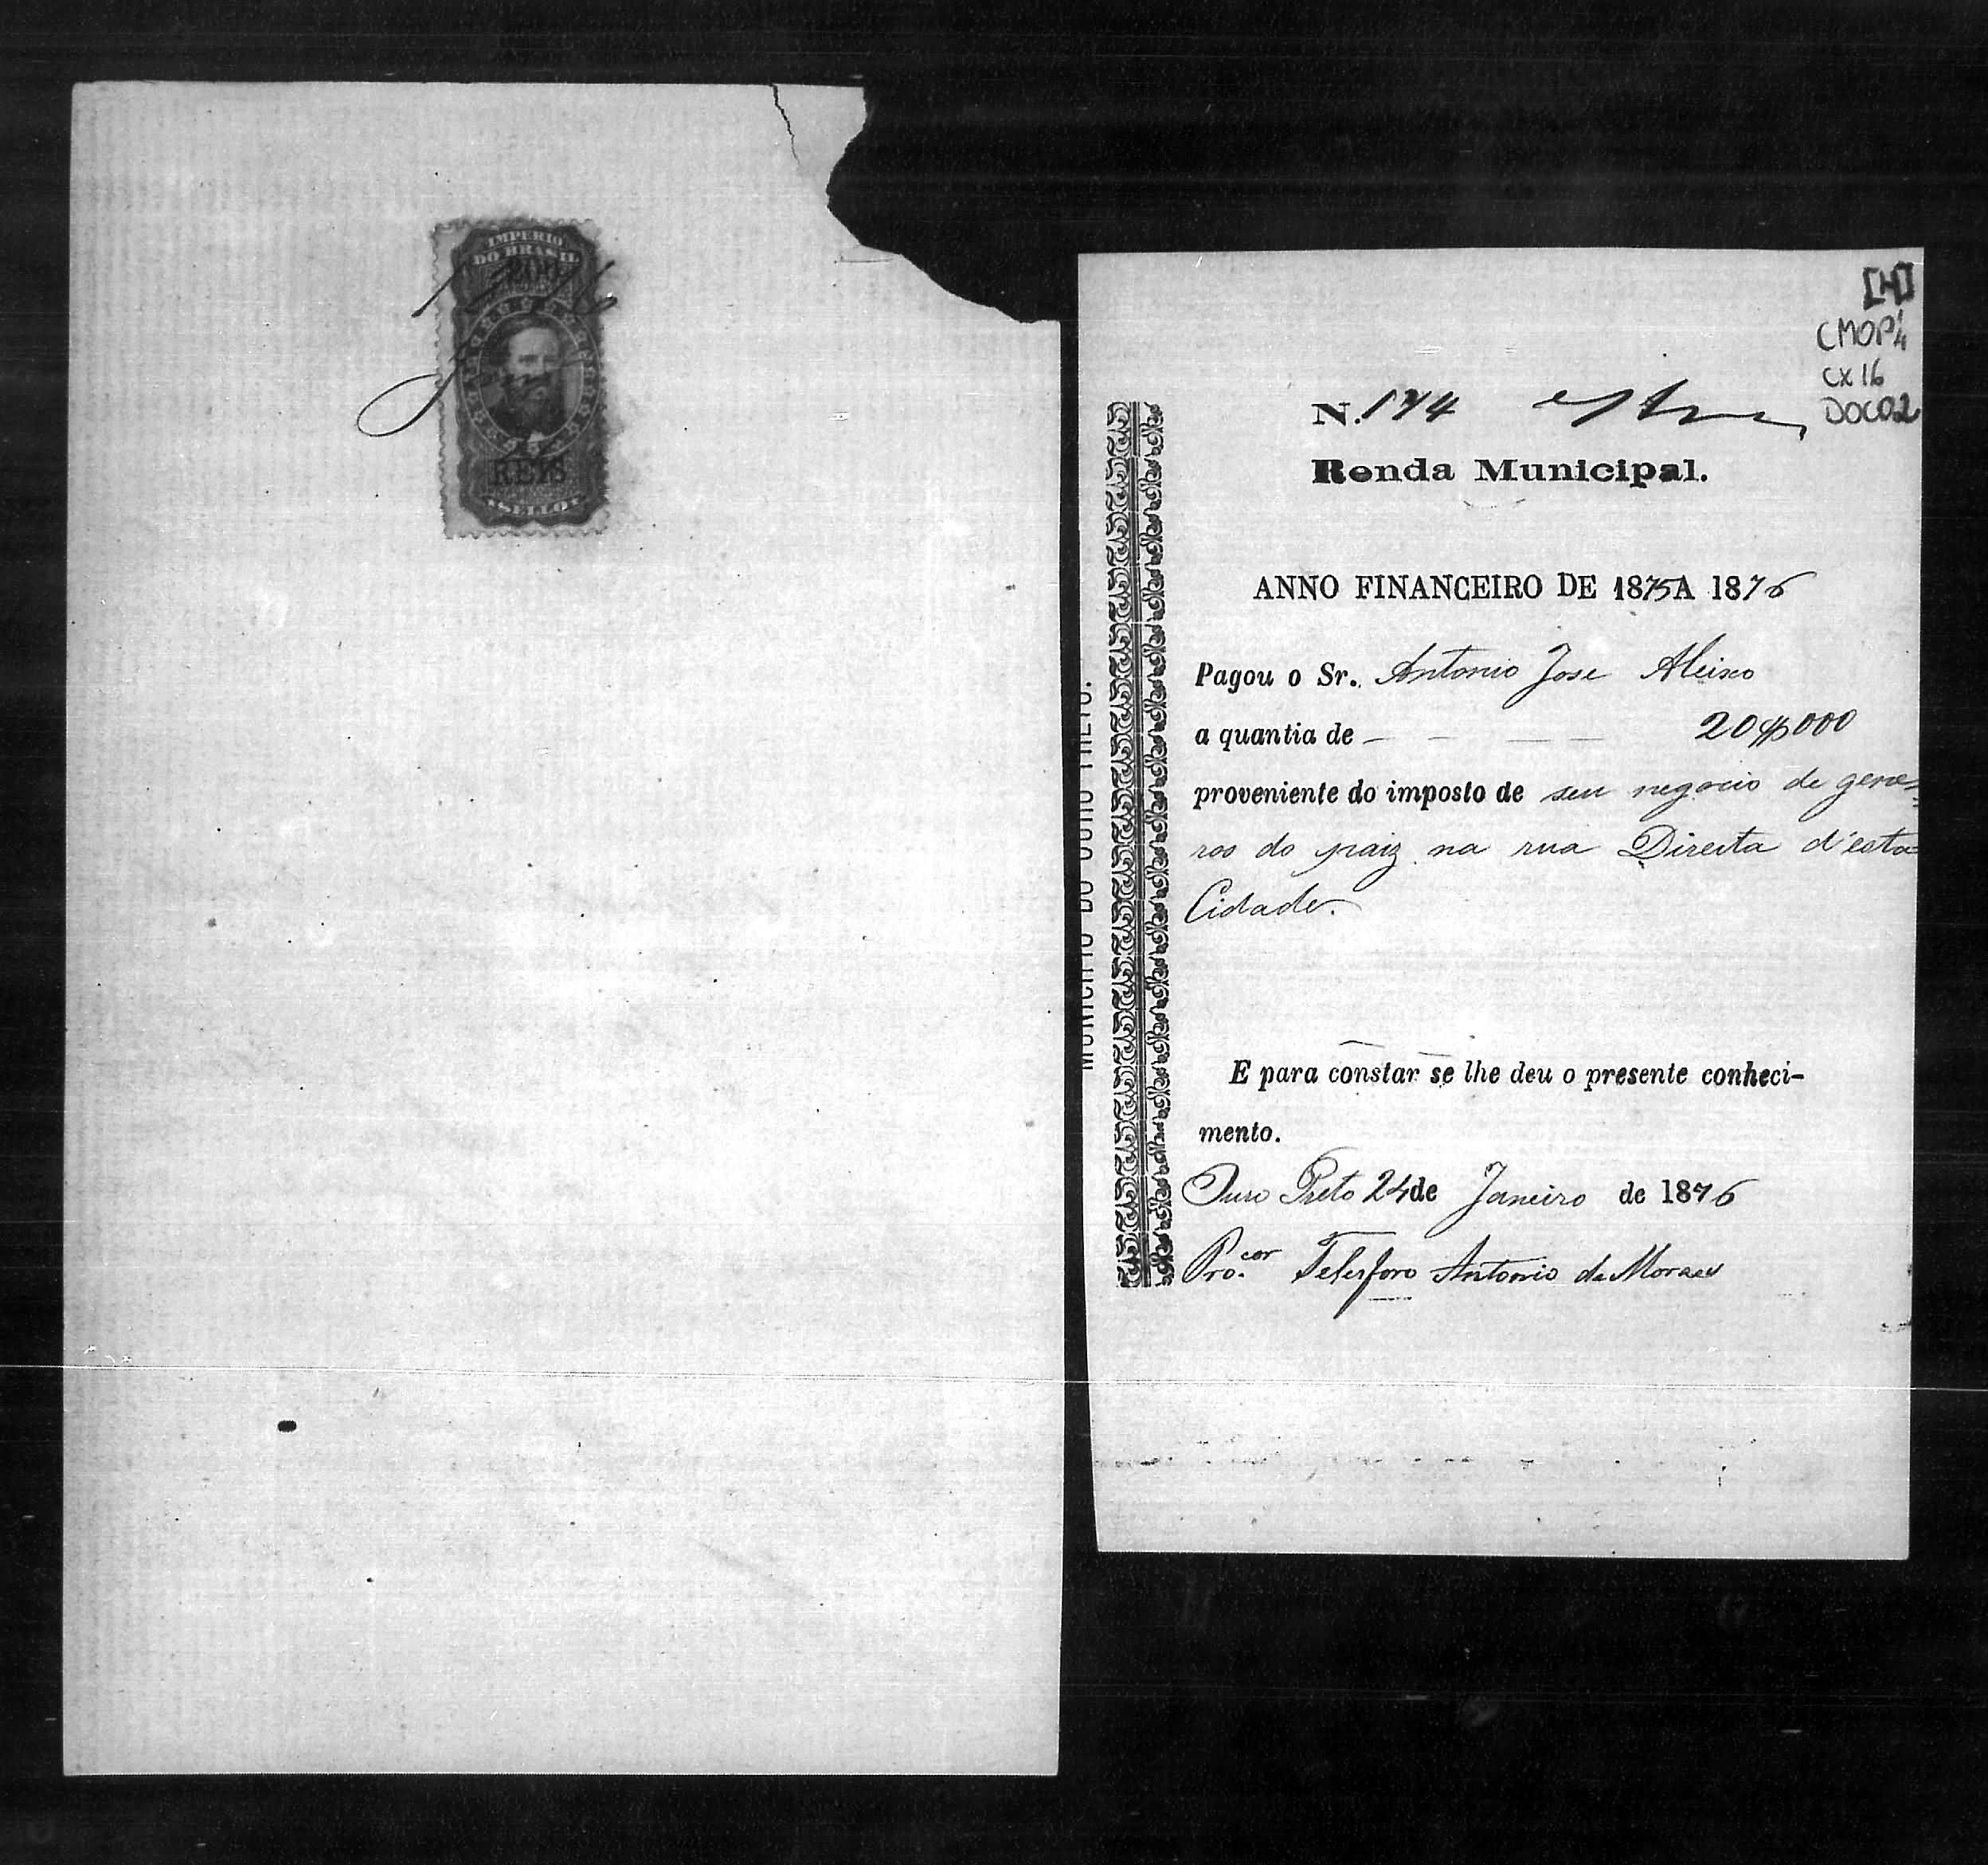 IMPERIO
DO BRASIL
200
REIS
SELLO
[4]
CMOP
CX 16
DOC02
N. 174
Renda Municipal.
ANNO FINANCEIRO DE 1875 A 1876
Pagou o Sr. Antonio Jose Aleixo
a quantia de — — — — 20$000
proveniente do imposto de seu negocio de gene=
ros do paiz na rua Direita d'esta
Cidade.
E para constar se lhe deu o presente conheci-
mento.
Ouro Preto 24 de Janeiro de 1876
Pro.cor Telesforo Antonio de Moraes
MUNICIPIO DO OURO PRETO.